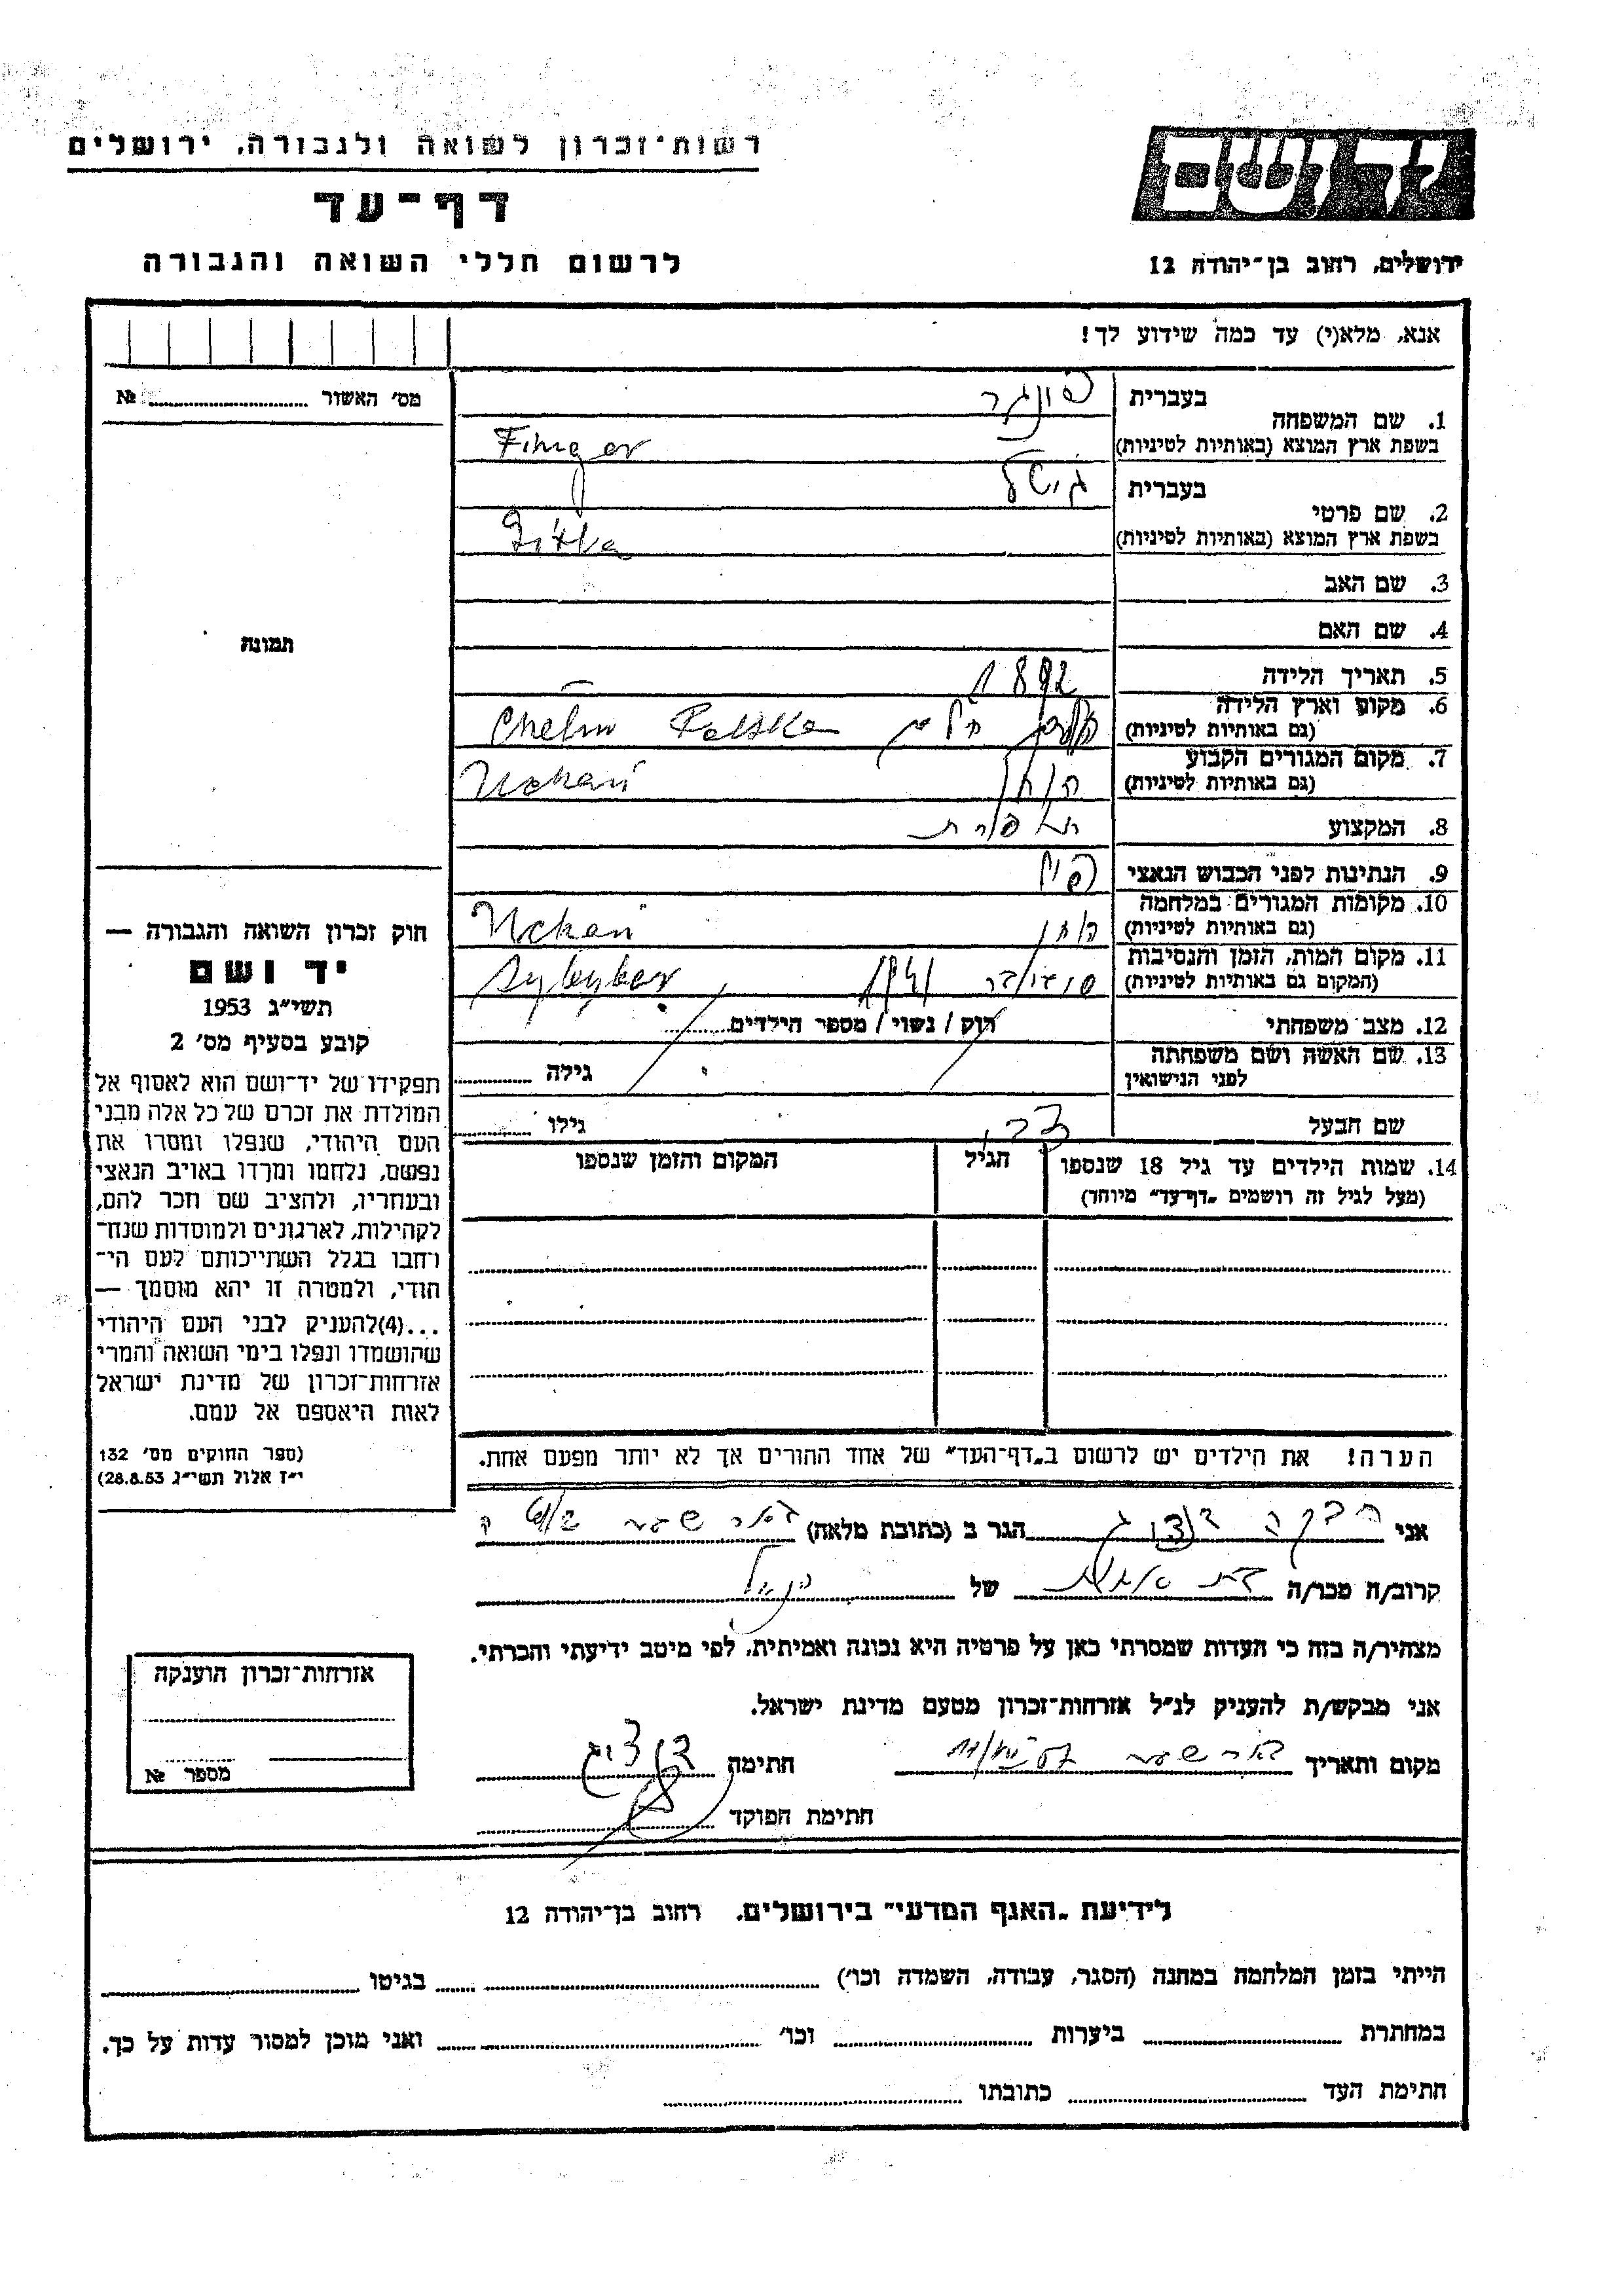 רשות־זכרון לשואה ולגבורה, ירושלים
דף־עד
לרשום חללי השואה והגבורה
יד ושם
ירושלים, רחוב בן־יהודה 12
אנא, מלא(י) עד כמה שידוע לך!
מס׳ האשור № ........
תמונה
1. שם המשפחה
בעברית
בשפת ארץ המוצא (באותיות לטיניות) Finger
2. שם פרטי
בעברית
בשפת ארץ המוצא (באותיות לטיניות)
3. שם האב
4. שם האם
5. תאריך הלידה 1892
6. מקום וארץ הלידה
(גם באותיות לטיניות) Chelm Polska
7. מקום המגורים הקבוע
(גם באותיות לטיניות) Uchani
8. המקצוע תופרת
9. הנתינות לפני הכבוש הנאצי
10. מקומות המגורים במלחמה
(גם באותיות לטיניות) Uchani
11. מקום המות, הזמן והנסיבות
(המקום גם באותיות לטיניות) סוביבור 1941
12. מצב משפחתי רוק / נשוי / מספר הילדים........
13. שם האשה ושם משפחתה
לפני הנישואין גילה ........
שם הבעל גילו ........
14. שמות הילדים עד גיל 18 שנספו הגיל המקום והזמן שנספו
(מעל לגיל זה רושמים „דף־עד״ מיוחד)
הערה! את הילדים יש לרשום ב„דף־העד״ של אחד ההורים אך לא יותר מפעם אחת.
חוק זכרון השואה והגבורה —
יד ושם
תשי״ג 1953
קובע בסעיף מס׳ 2
תפקידו של יד־ושם הוא לאסוף אל
המולדת את זכרם של כל אלה מבני
העם היהודי, שנפלו ומסרו את
נפשם, נלחמו ומרדו באויב הנאצי
ובעוזריו, ולהציב שם וזכר להם,
לקהילות, לארגונים ולמוסדות שנח־
רבו בגלל השתייכותם לעם הי־
הודי, ולמטרה זו יהא מוסמך —
...(4)להעניק לבני העם היהודי
שהושמדו ונפלו בימי השואה והמרי
אזרחות־זכרון של מדינת ישראל
לאות היאספם אל עמם.
(ספר החוקים מס׳ 132
י״ז אלול תשי״ג 28.8.53)
אני רבקה הגר ב (כתובת מלאה) באר שבע
קרוב/ה מכר/ה של
מצהיר/ה בזה כי העדות שמסרתי כאן על פרטיה היא נכונה ואמיתית, לפי מיטב ידיעתי והכרתי.
אני מבקש/ת להעניק לנ״ל אזרחות־זכרון מטעם מדינת ישראל.
מקום ותאריך באר שבע חתימה
חתימת הפוקד
אזרחות־זכרון הוענקה
מספר №
לידיעת „האגף המדעי״ בירושלים, רחוב בן־יהודה 12
הייתי בזמן המלחמה במחנה (הסגר, עבודה, השמדה וכו׳) ........ בגיטו ........
במחתרת ........ ביערות ........ וכו׳ ........ ואני מוכן למסור עדות על כך.
חתימת העד ........ כתובתו ........